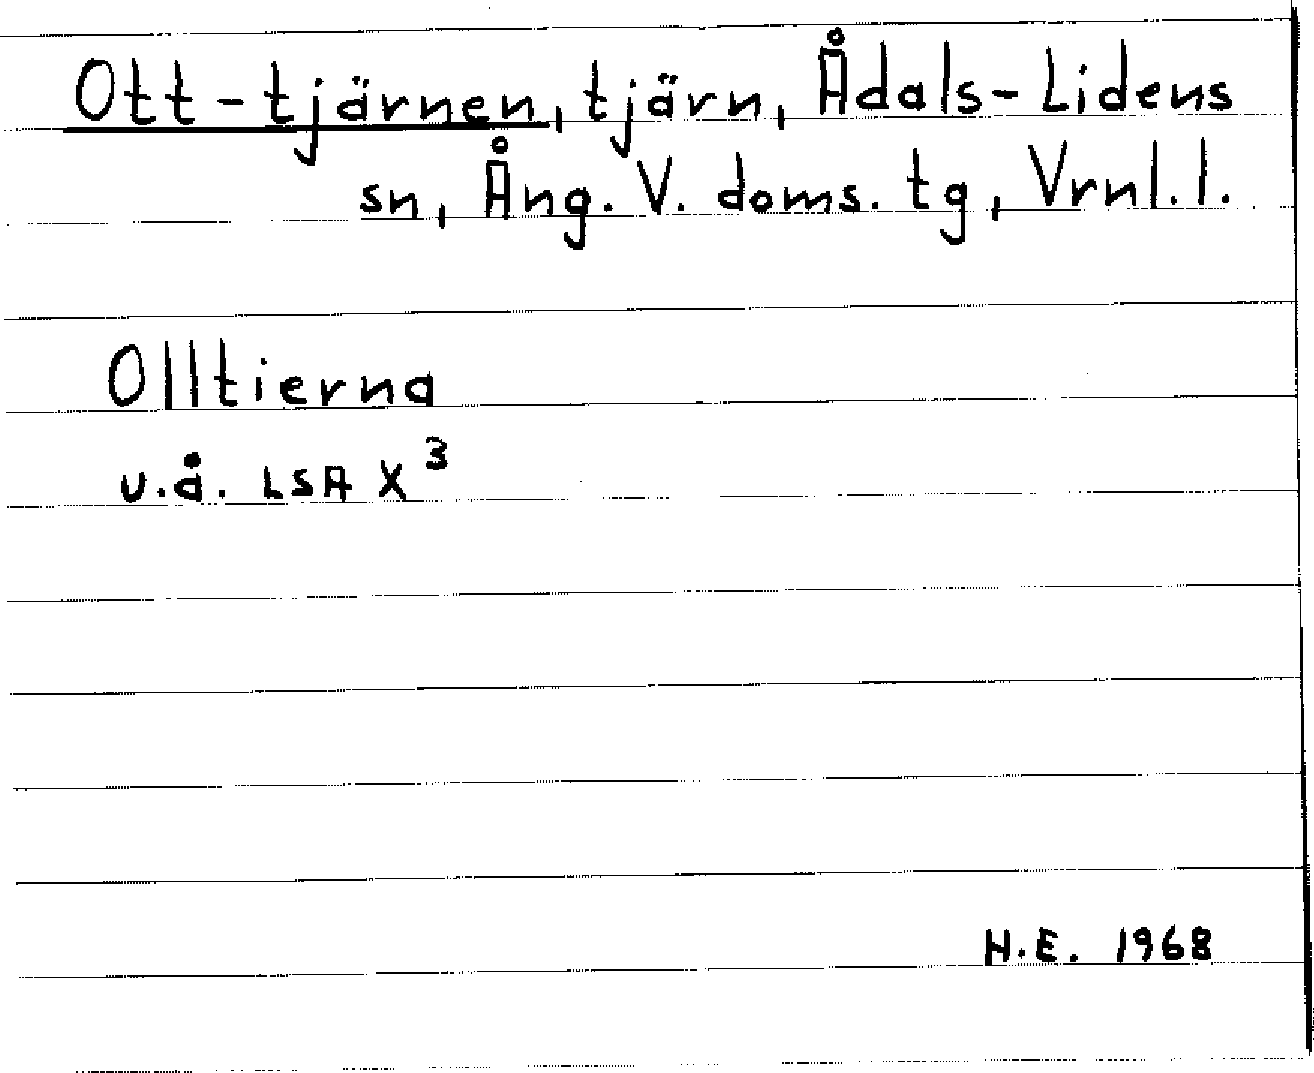 Ott-tjärnen, tjärn, Ådals-Lidens
sn, Ång. V. doms. tg, Vrnl. l.
Olltierna
u.å. LSA X³
H.E. 1968